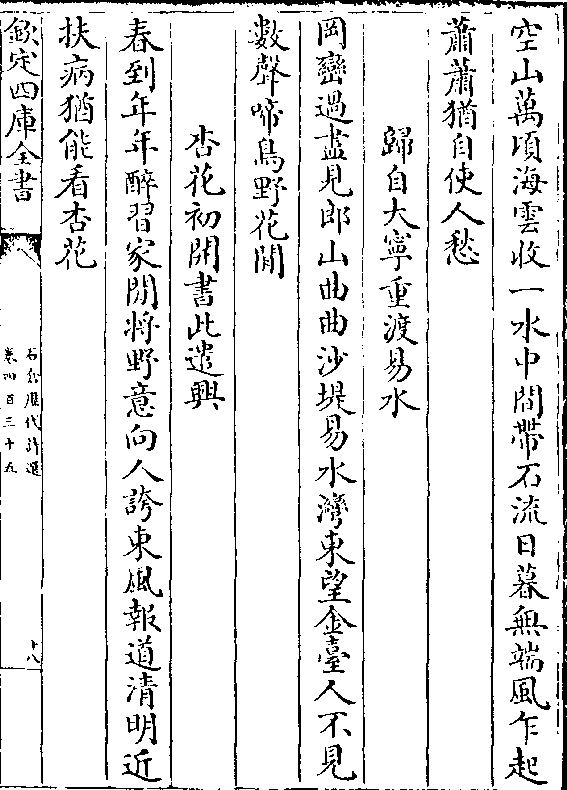 空山萬頃海雲收一水中間帶石流日暮無端風乍起
蕭蕭猶自使人愁
歸自大寧重渡易水
岡巒過盡見郎山曲曲沙堤易水灣東望金臺人不見
數聲啼鳥野花閒
杏花初開書此遣興
春到年年醉習家閒將野意向人誇東風報道清明近
扶病猶能看杏花
欽定四庫全書
石倉歷代詩選
卷四百三十五
十八